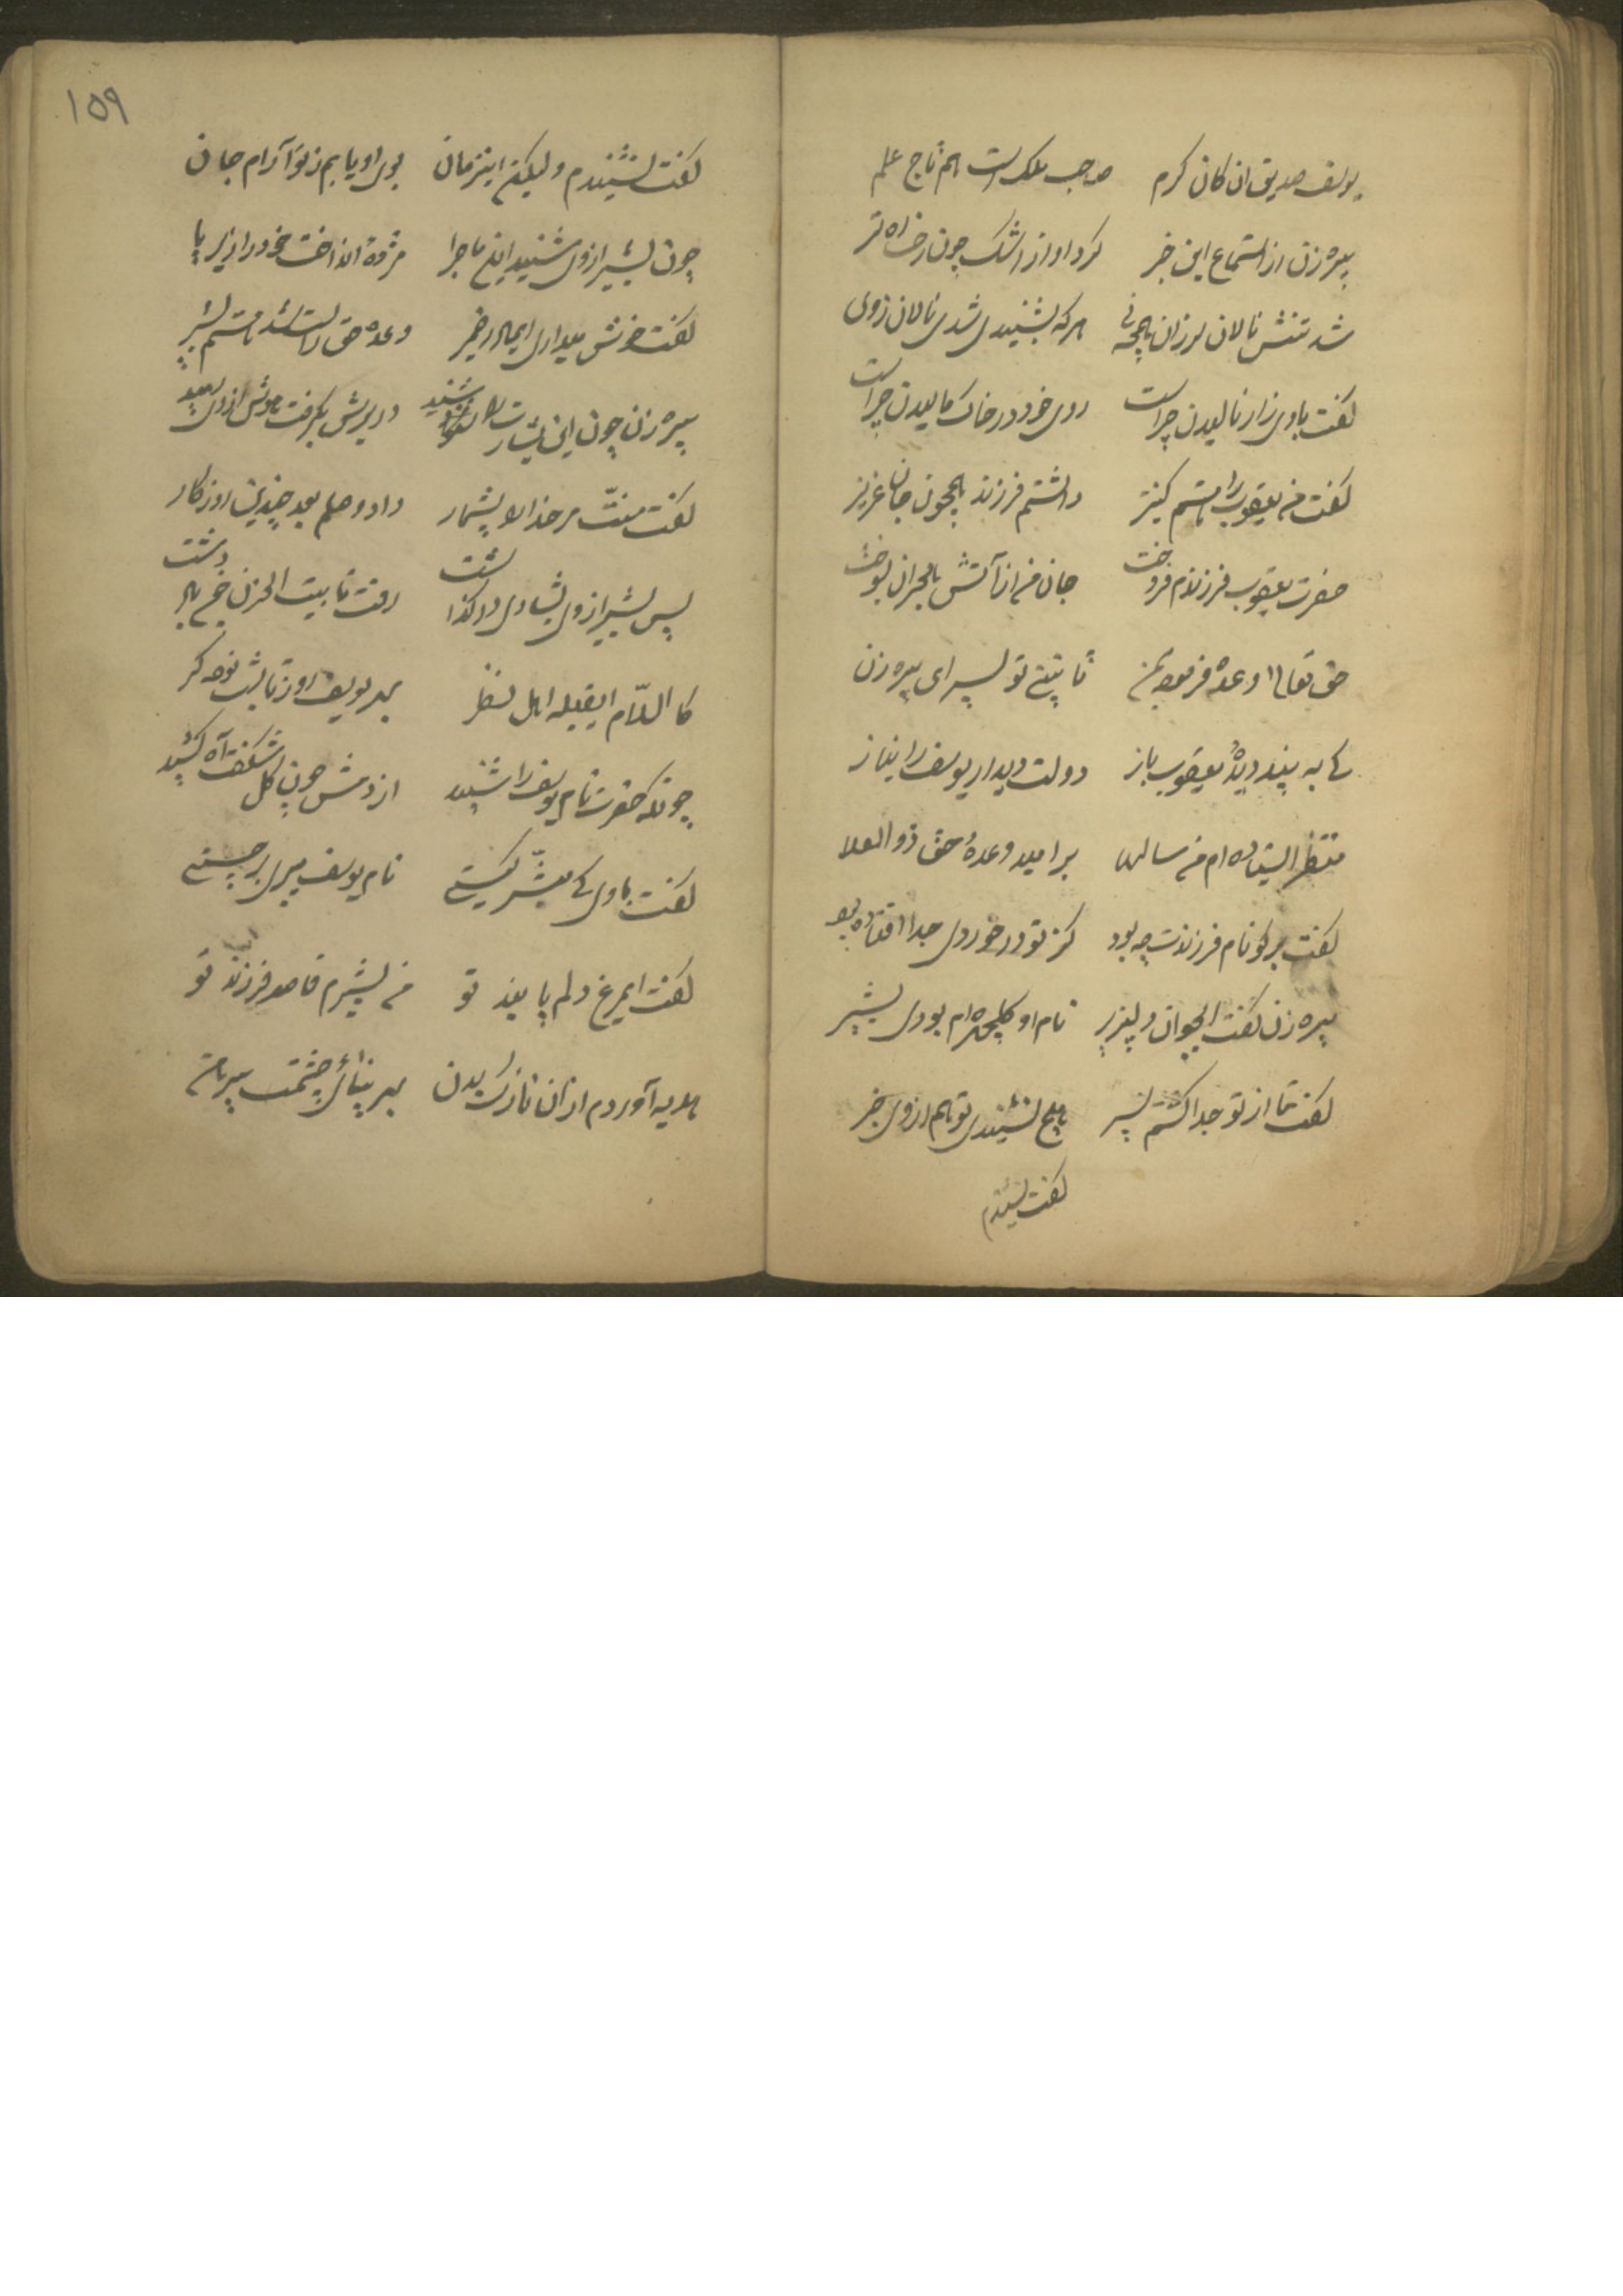 یوسف صدیق ان کان کرم صاحب ملک است هم تاج علم
پیره زن از استماع این خبر کرد او از اشک چون رخساره تر
شد تنش نالان لرزان همچو نی هرکه بشنیدی شدی نالان زوی
گفت باوی زار نالیدن چراست روی خود در خاک مالیدن چراست
گفت من یعقوب را هستم کنیز داشتم فرزند همچون جان عزیز
حضرت یعقوب فرزندم فروخت جان من از آتش هجران بسوخت
حق تعالی وعده فرمود بمن تا بینی تو پسر ای پیره زن
کی به بیند دیدهٔ یعقوب باز دولت دیدار یوسف را نیاز
منتظر ایستاده ام من سالها بر امید وعدهٔ حق ذو العلا
گفت برگو نام فرزندت چه بود کز تو در خوردی جدا افتاده بود
پیره زن گفت ایجوان دلپذیر نام او گلچهره ام بودی بشیر
گفت تا از تو جدا گشتم پسر هیچ نشنیدی تو هم از وی خبر
گفت نشنیدم
۱۵۹
گفت نشنیدم ولیکن اینزمان بوی او یابم ز تو آرام جان
چون بشیر از وی شنید این ماجرا مژده انداخت خود را زیر پا
گفت خوش میداری ایمادر خبر وعده حق راست شد هستم بشیر
پیره زن چون این بشارت را شنید در برش بگرفت هوش از وی رمید
گفت منّت مر خدا را بیشمار داد وصلم بعد چندین روزگار
پس بشیر از وی بشادی در گذاشت رفت تا بیت الحزن
کالسلام ایقبله اهل نظر بهر یوسف روز تا شب نوحه گر
چونکه حضرت نام یوسف را شنید از دمش چون گل شکفت آه کشید
گفت باوی کی مبشّر کیستی نام یوسف میبری بر چیستی
گفت ایمرغ دلم پابند تو من بشیرم قاصد فرزند تو
هدیه آوردم از ان نازک بدن بهر بینائی چشمت پیرهن